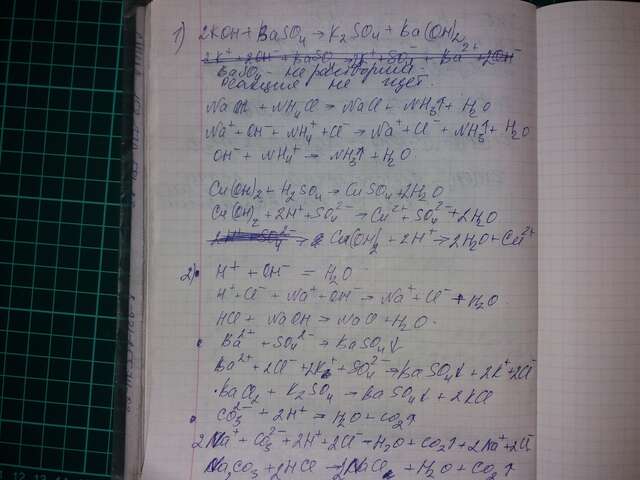 1) 2KOH + BaSO₄ → K₂SO₄ + Ba(OH)₂
2K⁺ + 2OH⁻ + BaSO₄ → 2K⁺ + SO₄²⁻ + Ba²⁺ + 2OH⁻
BaSO₄ - не растворим
реакция не идет.
NaOH + NH₄Cl → NaCl + NH₃↑ + H₂O
Na⁺ + OH⁻ + NH₄⁺ + Cl⁻ → Na⁺ + Cl⁻ + NH₃↑ + H₂O
OH⁻ + NH₄⁺ → NH₃↑ + H₂O
Cu(OH)₂ + H₂SO₄ → CuSO₄ + 2H₂O
Cu(OH)₂ + 2H⁺ + SO₄²⁻ → Cu²⁺ + SO₄²⁻ + 2H₂O
Cu(OH)₂ + 2H⁺ → 2H₂O + Cu²⁺
2) • H⁺ + OH⁻ = H₂O
H⁺ + Cl⁻ + Na⁺ + OH⁻ → Na⁺ + Cl⁻ + H₂O
HCl + NaOH → NaCl + H₂O
• Ba²⁺ + SO₄²⁻ → BaSO₄↓
Ba²⁺ + 2Cl⁻ + 2K⁺ + SO₄²⁻ → BaSO₄↓ + 2K⁺ + 2Cl⁻
BaCl₂ + K₂SO₄ → BaSO₄↓ + 2KCl
• CO₃²⁻ + 2H⁺ = H₂O + CO₂↑
2Na⁺ + CO₃²⁻ + 2H⁺ + 2Cl⁻ → H₂O + CO₂↑ + 2Na⁺ + 2Cl⁻
Na₂CO₃ + 2HCl → 2NaCl + H₂O + CO₂↑